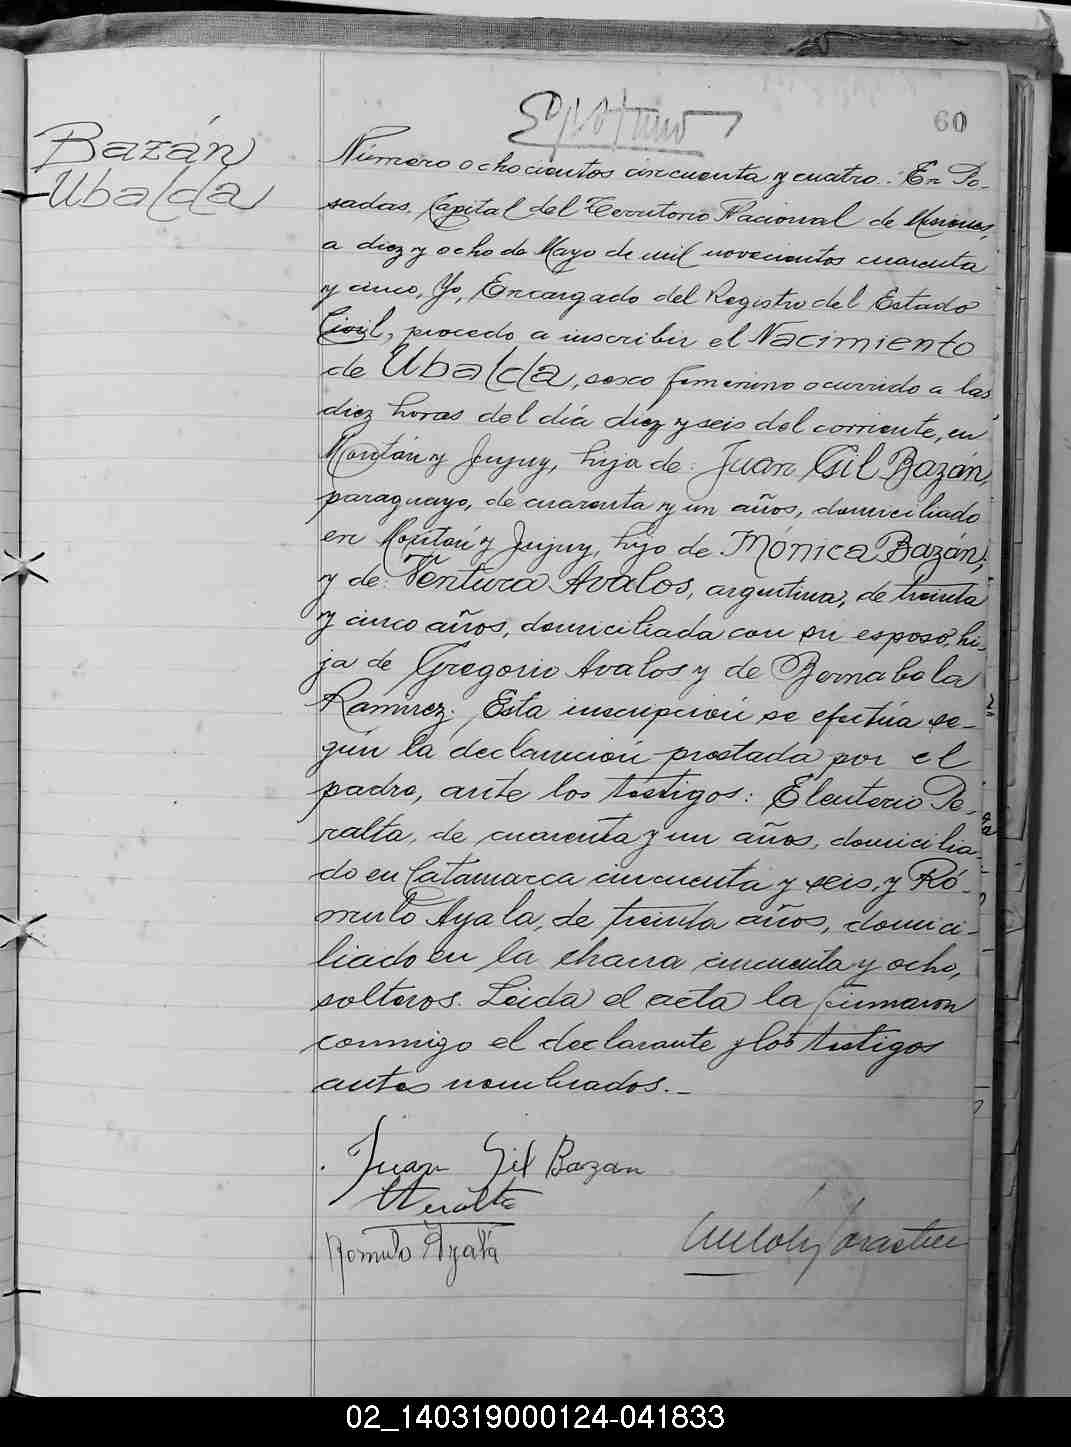 60
Bazán
Ubalda
Número ochocientos cincuenta y cuatro.. En Po-
sadas, Capital del Territorio Nacional de Misiones,
a diez y ocho de Mayo de mil novecientos cuarenta
y cinco, Yo, Encargado del Registro del Estado
Civil, procedo a inscribir el Nacimiento
de Ubalda, sexo femenino ocurrido a las
diez horas del día diez y seis del corriente, en
y Jujuy, hija de: Juan Gil Bazán,
paraguayo, de cuarenta y un años, domiciliado
en y Jujuy, hijo de Mónica Bazán;
y de Ventura Avalos, argentina, de treinta
y cinco años, domiciliada con su esposo, hi-
ja de Gregorio Avalos y de Bernabela
Ramirez. Esta inscripción se efectúa se-
gún la declaración prestada por el
padre, ante los testigos: Eleuterio Pe-
ralta, de cuarenta y un años, domicilia-
do en Catamarca cincuenta y seis, y Ró-
mulo Ayala, de treinta años, domici-
liado en la chacra cincuenta y ocho,
solteros. Leida el acta la firmaron
conmigo el declarante y los testigos
antes nombrados.-
Juan Gil Bazan
Romulo Ayala
02_140319000124-041833